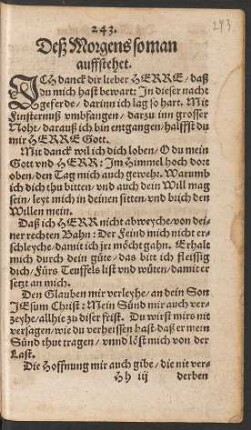 243.
243
Deß Morgens so man
auffstehet.
ICH danck dir lieber HERRE/ daß
du mich hast bewart: In dieser nacht
geferde/ darinn ich lag so hart. Mit
Finsternuß vmbfangen/ darzu inn grosser
Noht/ darauß ich bin entgangen/ halffst du
mir HERRE Gott.
Mit danck wol ich dich loben/ O du mein
Gott vnd HERR: Im Himmel hoch dort
oben/ den Tag mich auch gewehr. Warumb
ich dich thu bitten/ vnd auch dein Will mag
sein/ leyt mich in deinen sitten/ vnd brich den
Willen mein.
Daß ich HERR nicht abweyche/ von dei-
ner rechten Bahn: Der Feind mich nicht er-
schleyche/ damit ich jrr möcht gahn. Erhalt
mich durch dein güte/ das bitt ich fleissig
dich/ Fürs Teuffels list vnd wüten/ damit er
setzt an mich.
Den Glauben mir verleyhe/ an dein Son
JEsum Christ: Mein Sünd mir auch ver-
zeyhe/ allhie zu diser frist. Du wirst mirs nit
versagen/ wie du verheissen hast/ daß er mein
Sünd thut tragen/ vnnd löst mich von der
Last.
Die Hoffnung mir auch gibe/ die nit ver-
Hh iij derben